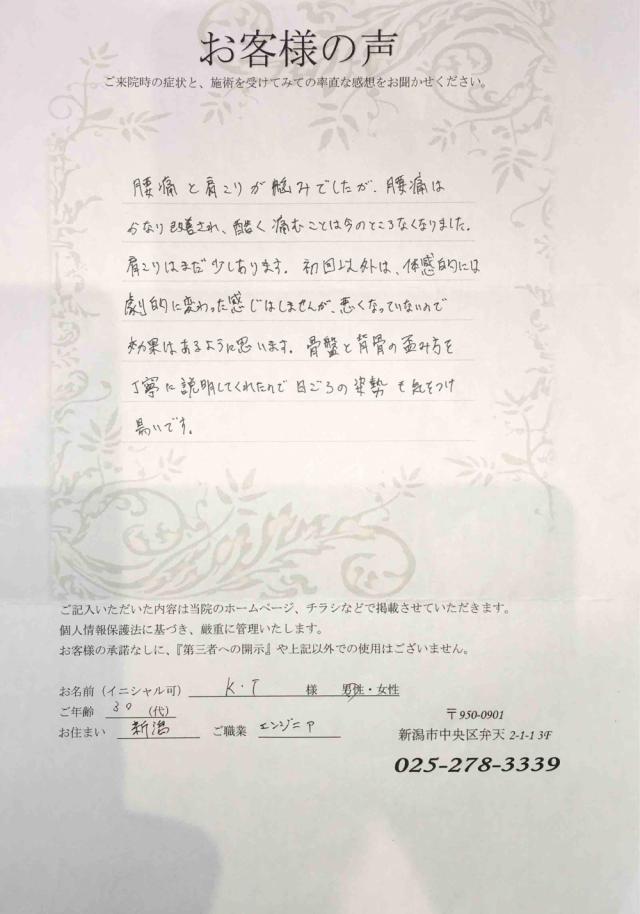 お客様の声
ご来院時の症状と、施術を受けてみての率直な感想をお聞かせください。
腰痛と肩こりが悩みでしたが、腰痛は
かなり改善され、酷く痛むことは今のところなくなりました。
肩こりはまだ少しあります。初回以外は、体感的には
劇的に変わった感じはしませんが、悪くなっていないので
効果はあるように思います。骨盤と背骨の歪み方を
丁寧に説明してくれたので日ごろの姿勢も気をつけ
易いです。
ご記入いただいた内容は当院のホームページ、チラシなどで掲載させていただきます。
個人情報保護法に基づき、厳重に管理いたします。
お客様の承諾なしに、『第三者への開示』や上記以外での使用はございません。
お名前（イニシャル可） K・T 様 男性・女性
ご年齢 30 （代）
お住まい 新潟 ご職業 エンジニア
〒950-0901
新潟市中央区弁天 2-1-1 3F
025-278-3339